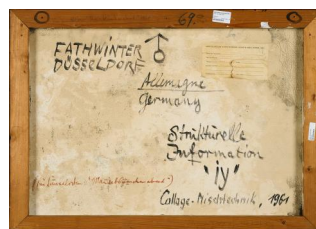 69.
FATHWINTER
DÜSSELDORF
Allemagne
Germany
Struktürelle
Information
"iy"
Collage-Mischtechnik, 1961